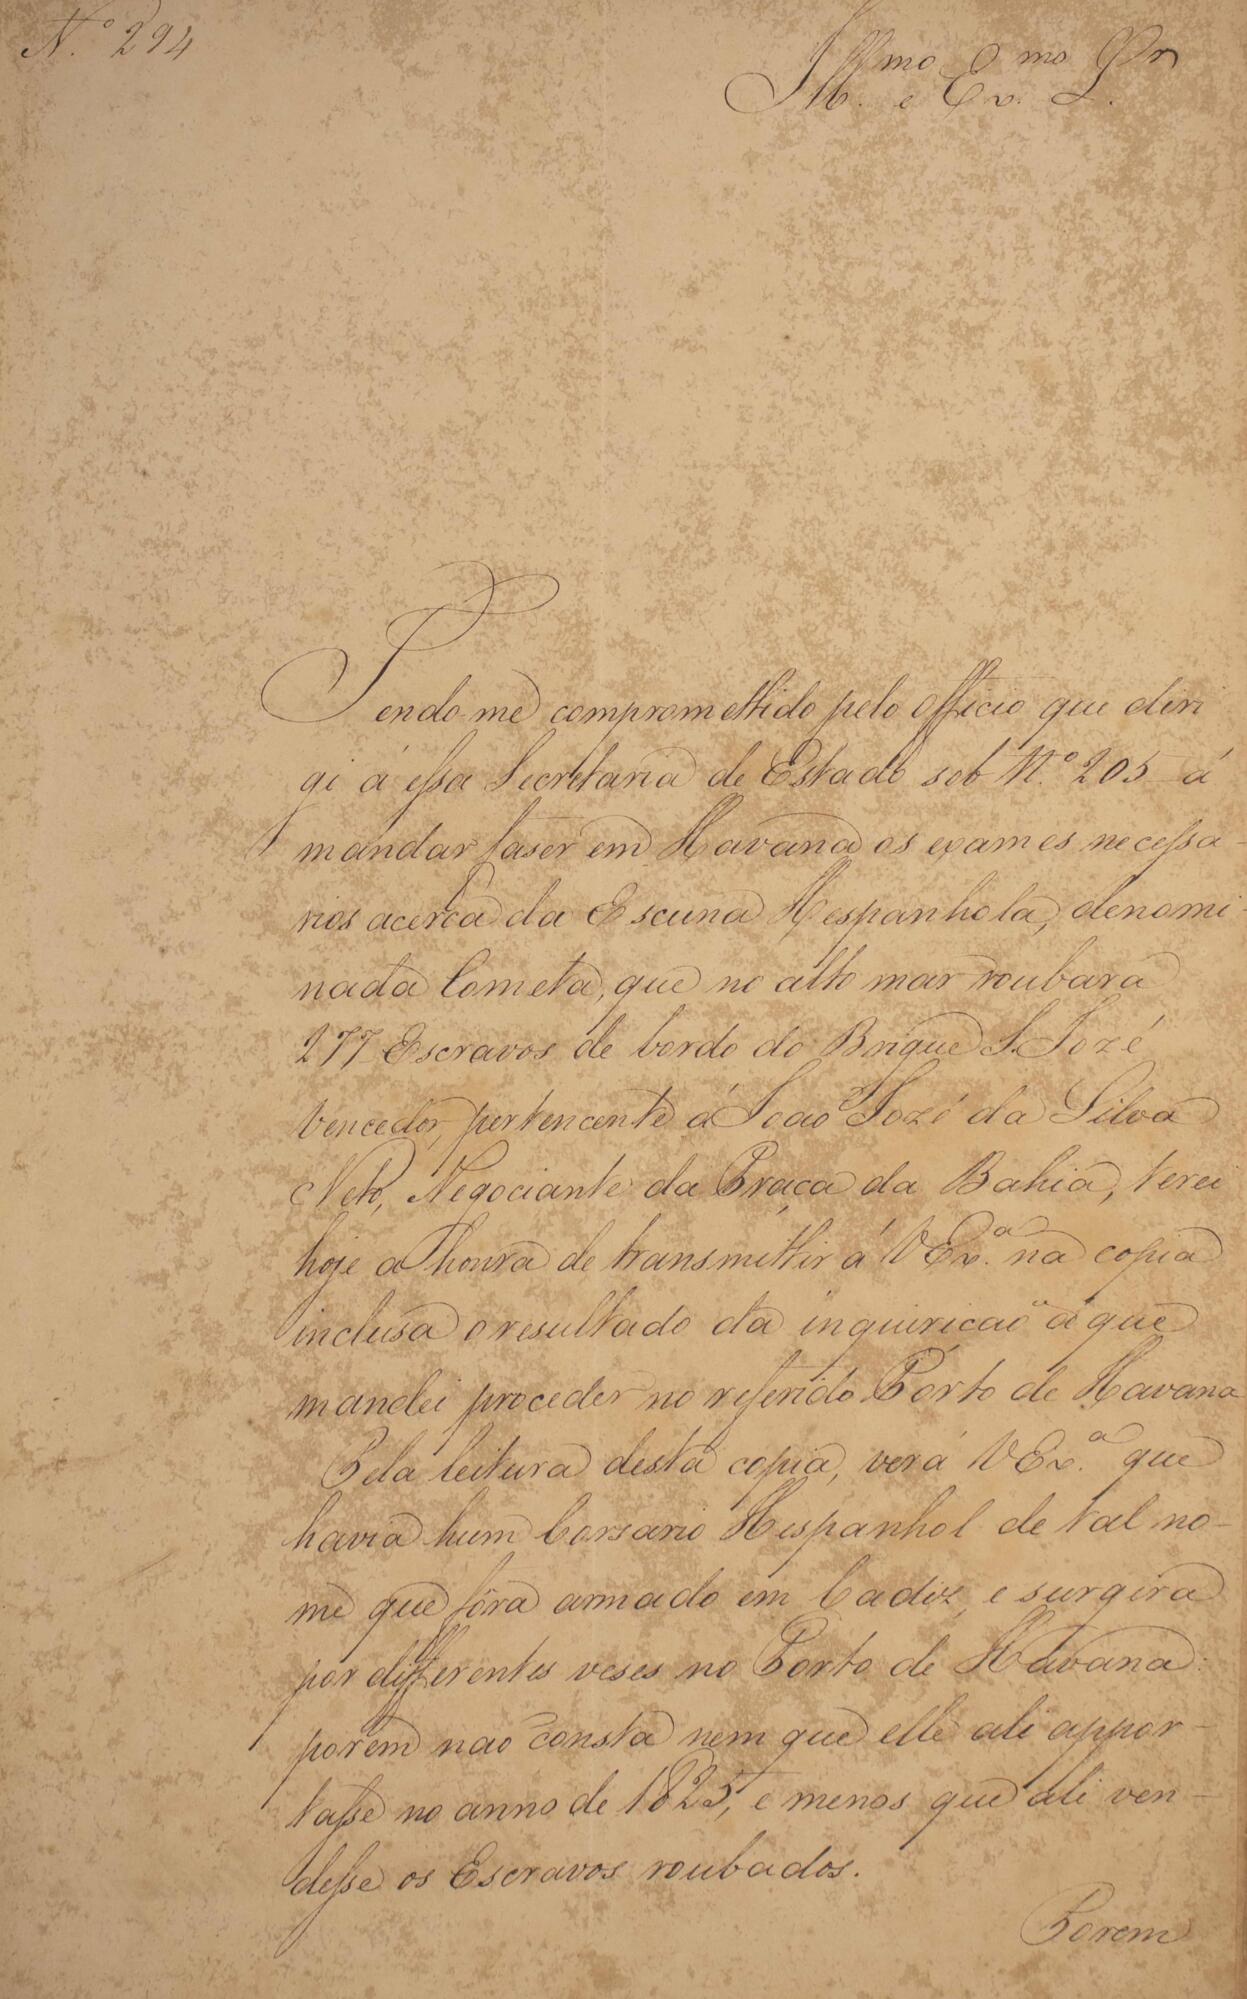 N.º 294
Ill.mo e Ex.mo Sr.
Tendo-me compromettido pelo Officio que diri
gi á essa Secretaria de Estado sob N.º 205 á
mandar faser em Havana os exames necessa-
rios acerca da Escuna Hespanhola, denomi-
nada Cometa, que no alto mar roubara
277 Escravos de bordo do Brigue S. Jozé
Vencedor, pertencente á Joaõ Jozé da Silva
Neto, Negociante da Praça da Bahia, terei
hoje a honra de transmittir á V Ex.ª na copia
inclusa o resultado da inquiricaõ a que
mandei proceder no referido Porto de Havana
Pela leitura desta copia, verá V Ex.ª que
havia hum Corsario Hespanhol de tal no-
me que fôra armado em Cadiz, e surgira
por differentes veses no Porto de Havana:
porem naõ consta nem que elle ali appor-
tasse no anno de 1825, e menos que ali ven-
desse os Escravos roubados.
Porem